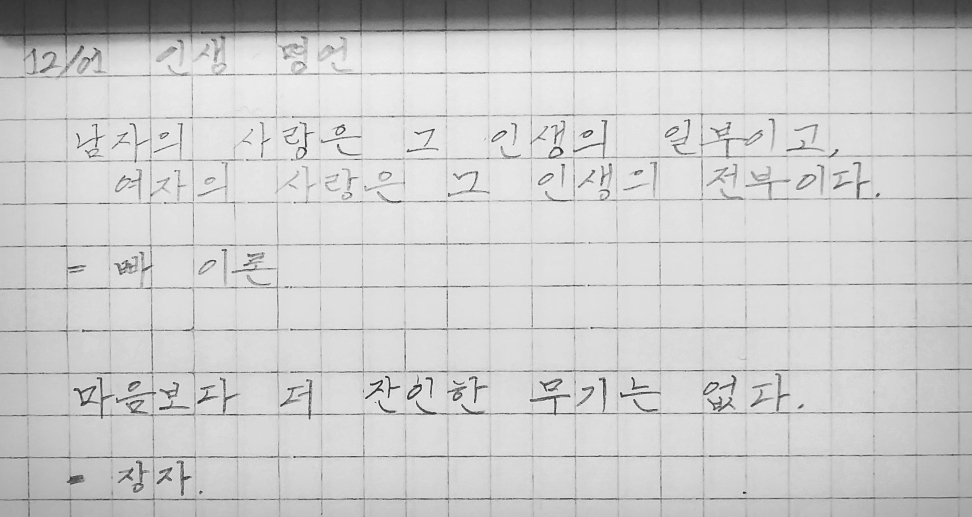 12/01 인생 명언
남자의 사랑은 그 인생의 일부이고,
여자의 사랑은 그 인생의 전부이다.
= 빠 이론
마음보다 더 잔인한 무기는 없다.
- 장자.